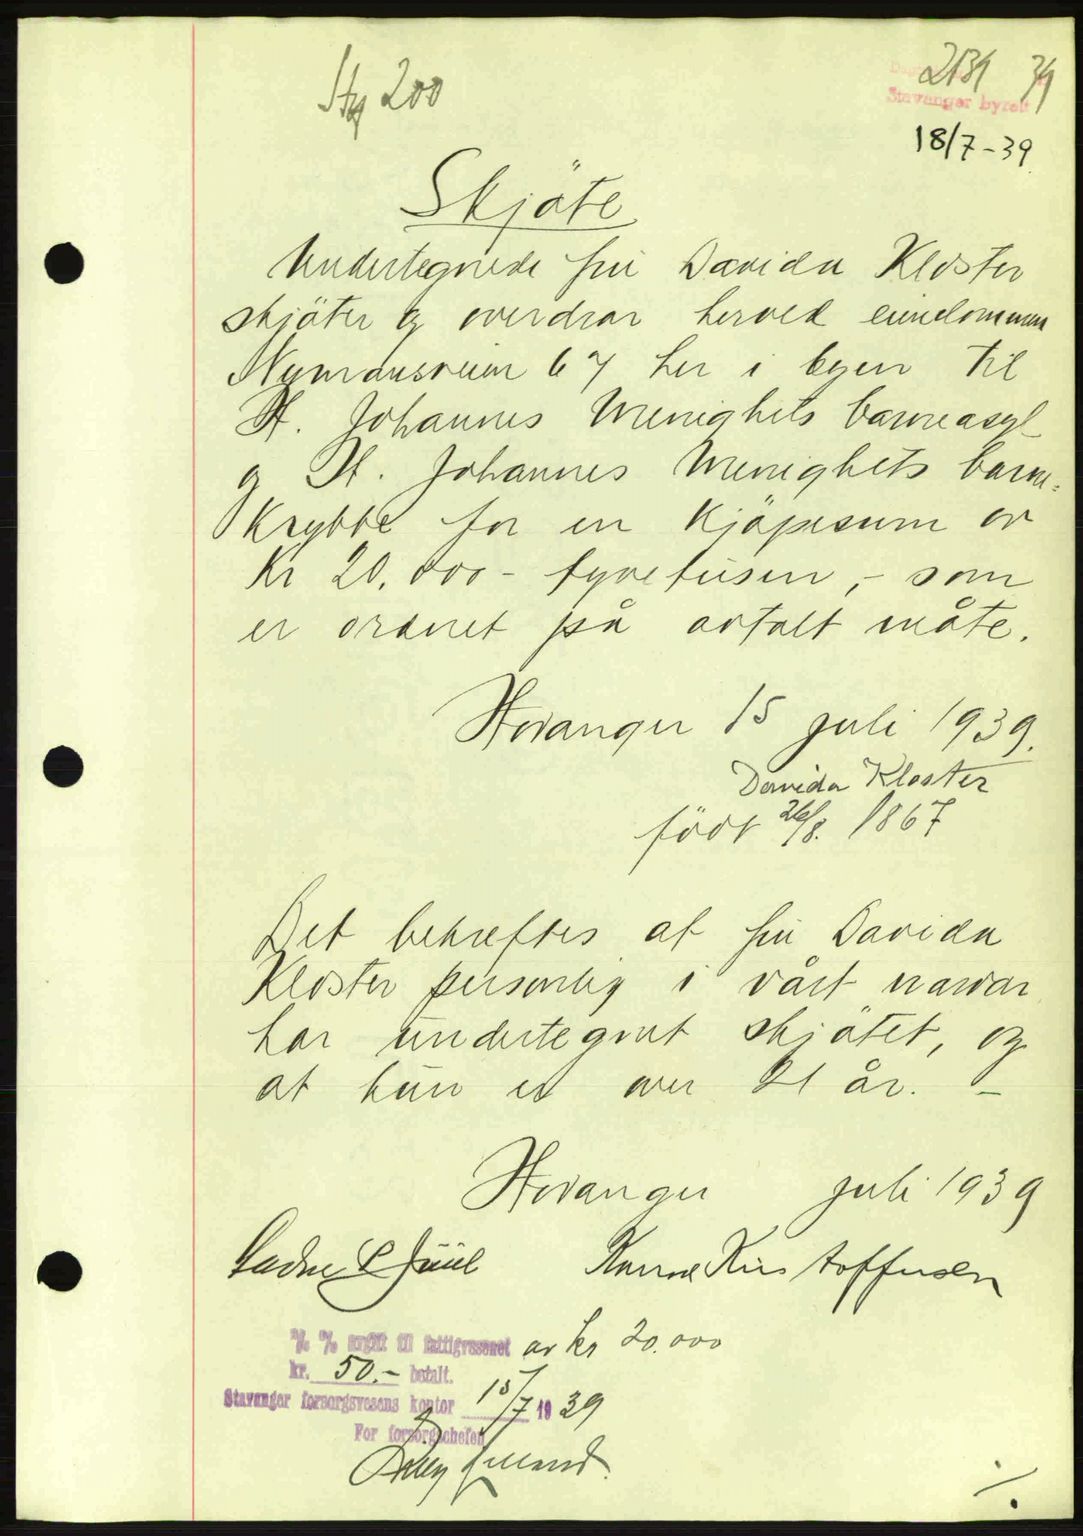 Stp 200
2131 39
Stavanger byrett
18/7-39
Skjöte
Undertegnede frü Davida Kloster
skjöter og overdrar herved eiendommen
Nymansveien 67 her i byen til
St. Johannes Menighets barneasyl
og St. Johannes Menighets barne=
krybbe for en kjöpesum av
Kr 20.000 - tyvetüsen,- som
er ordnet på avtalt måte.
Stavanger 15 juli 1939.
Davida Kloster
född 26/8. 1867
Det bekreftes at frü Davida
Kloster personlig i vårt nærvær
har ündertegnet skjötet, og
at hün er over 21 år. -
Stavanger juli 1939
Juül Kristoffersen
% avgift til fattigvesenet av kr 20.000
kr. 50.- betalt.
Stavanger forsorgsvesens kontor 15/7 1939
For forsorgschefen
./.